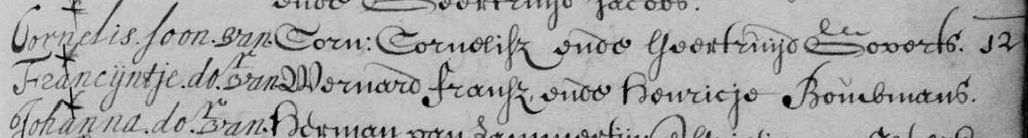 ende Geertruijd Jacobs.
Cornelis. soon. van Corn: Cornelisz ende Geertruijd Goverts. 12
Francijntje. do.r van Wernard fransz ende Henricje Boumans.
Johanna. do.r van Herman van